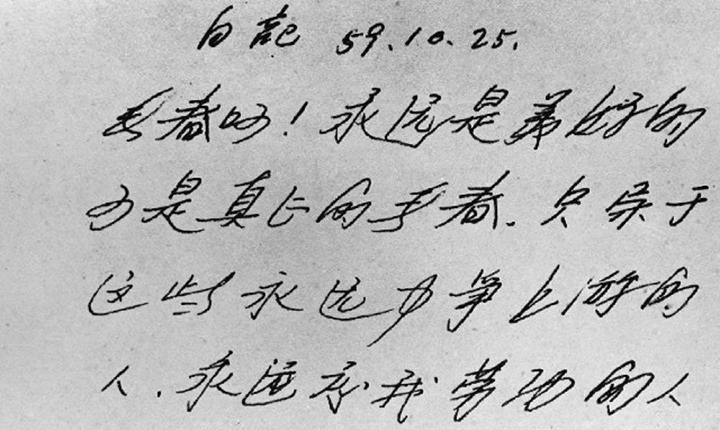 日记 59.10.25.
青春呵!永远是美好的
可是真正的青春.只属于
这些永远力争上游的
人.永远忘我劳动的人